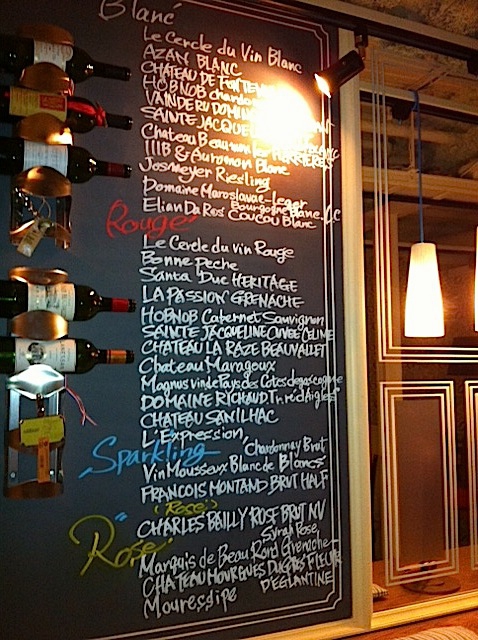 Blanc
Le Cercle du Vin Blanc
AZAN BLANC
CHATEAU DE FONTEN
HOBNOB chardon
VAINDERU DOMIN
SAINTE JACQUEL
Chateau Beaumon les FERRIERES
IIIB & Auromon Blanc
Josmeyer Riesling
Domaine Maroslavac-Leger
Bourgogne Blanc
Elian Da Ros Coucou Blanc
Rouge
Le Cercle du vin Rouge
Bonne Peche
Santa Duc HERITAGE
LA PASSION GRENACHE
HOBNOB Cabernet Sauvignon
SAINTE JACQUELINE CUVEE CELINE
CHATEAU LA RAZE BEAUVALLET
Chateau Maragoux
Magnus vin de Pays des Cotes de gascogne
DOMAINE RICHAUD Tn red Aigles
CHATEAU SANILHAC
L'Expression
Sparkling
Chardonnay Brut
Vin Mousseux Blanc de Blancs
FRANCOIS MONTAND BRUT HALF
(Rosé)
CHARLES BAILLY ROSE BRUT NV
Rosé
Syrah Rose,
Marquis de Beau Rond Grenache-
CHATEAU MOURGUES DU GRES FLEUR
D'EGLANTINE
Mouressipe